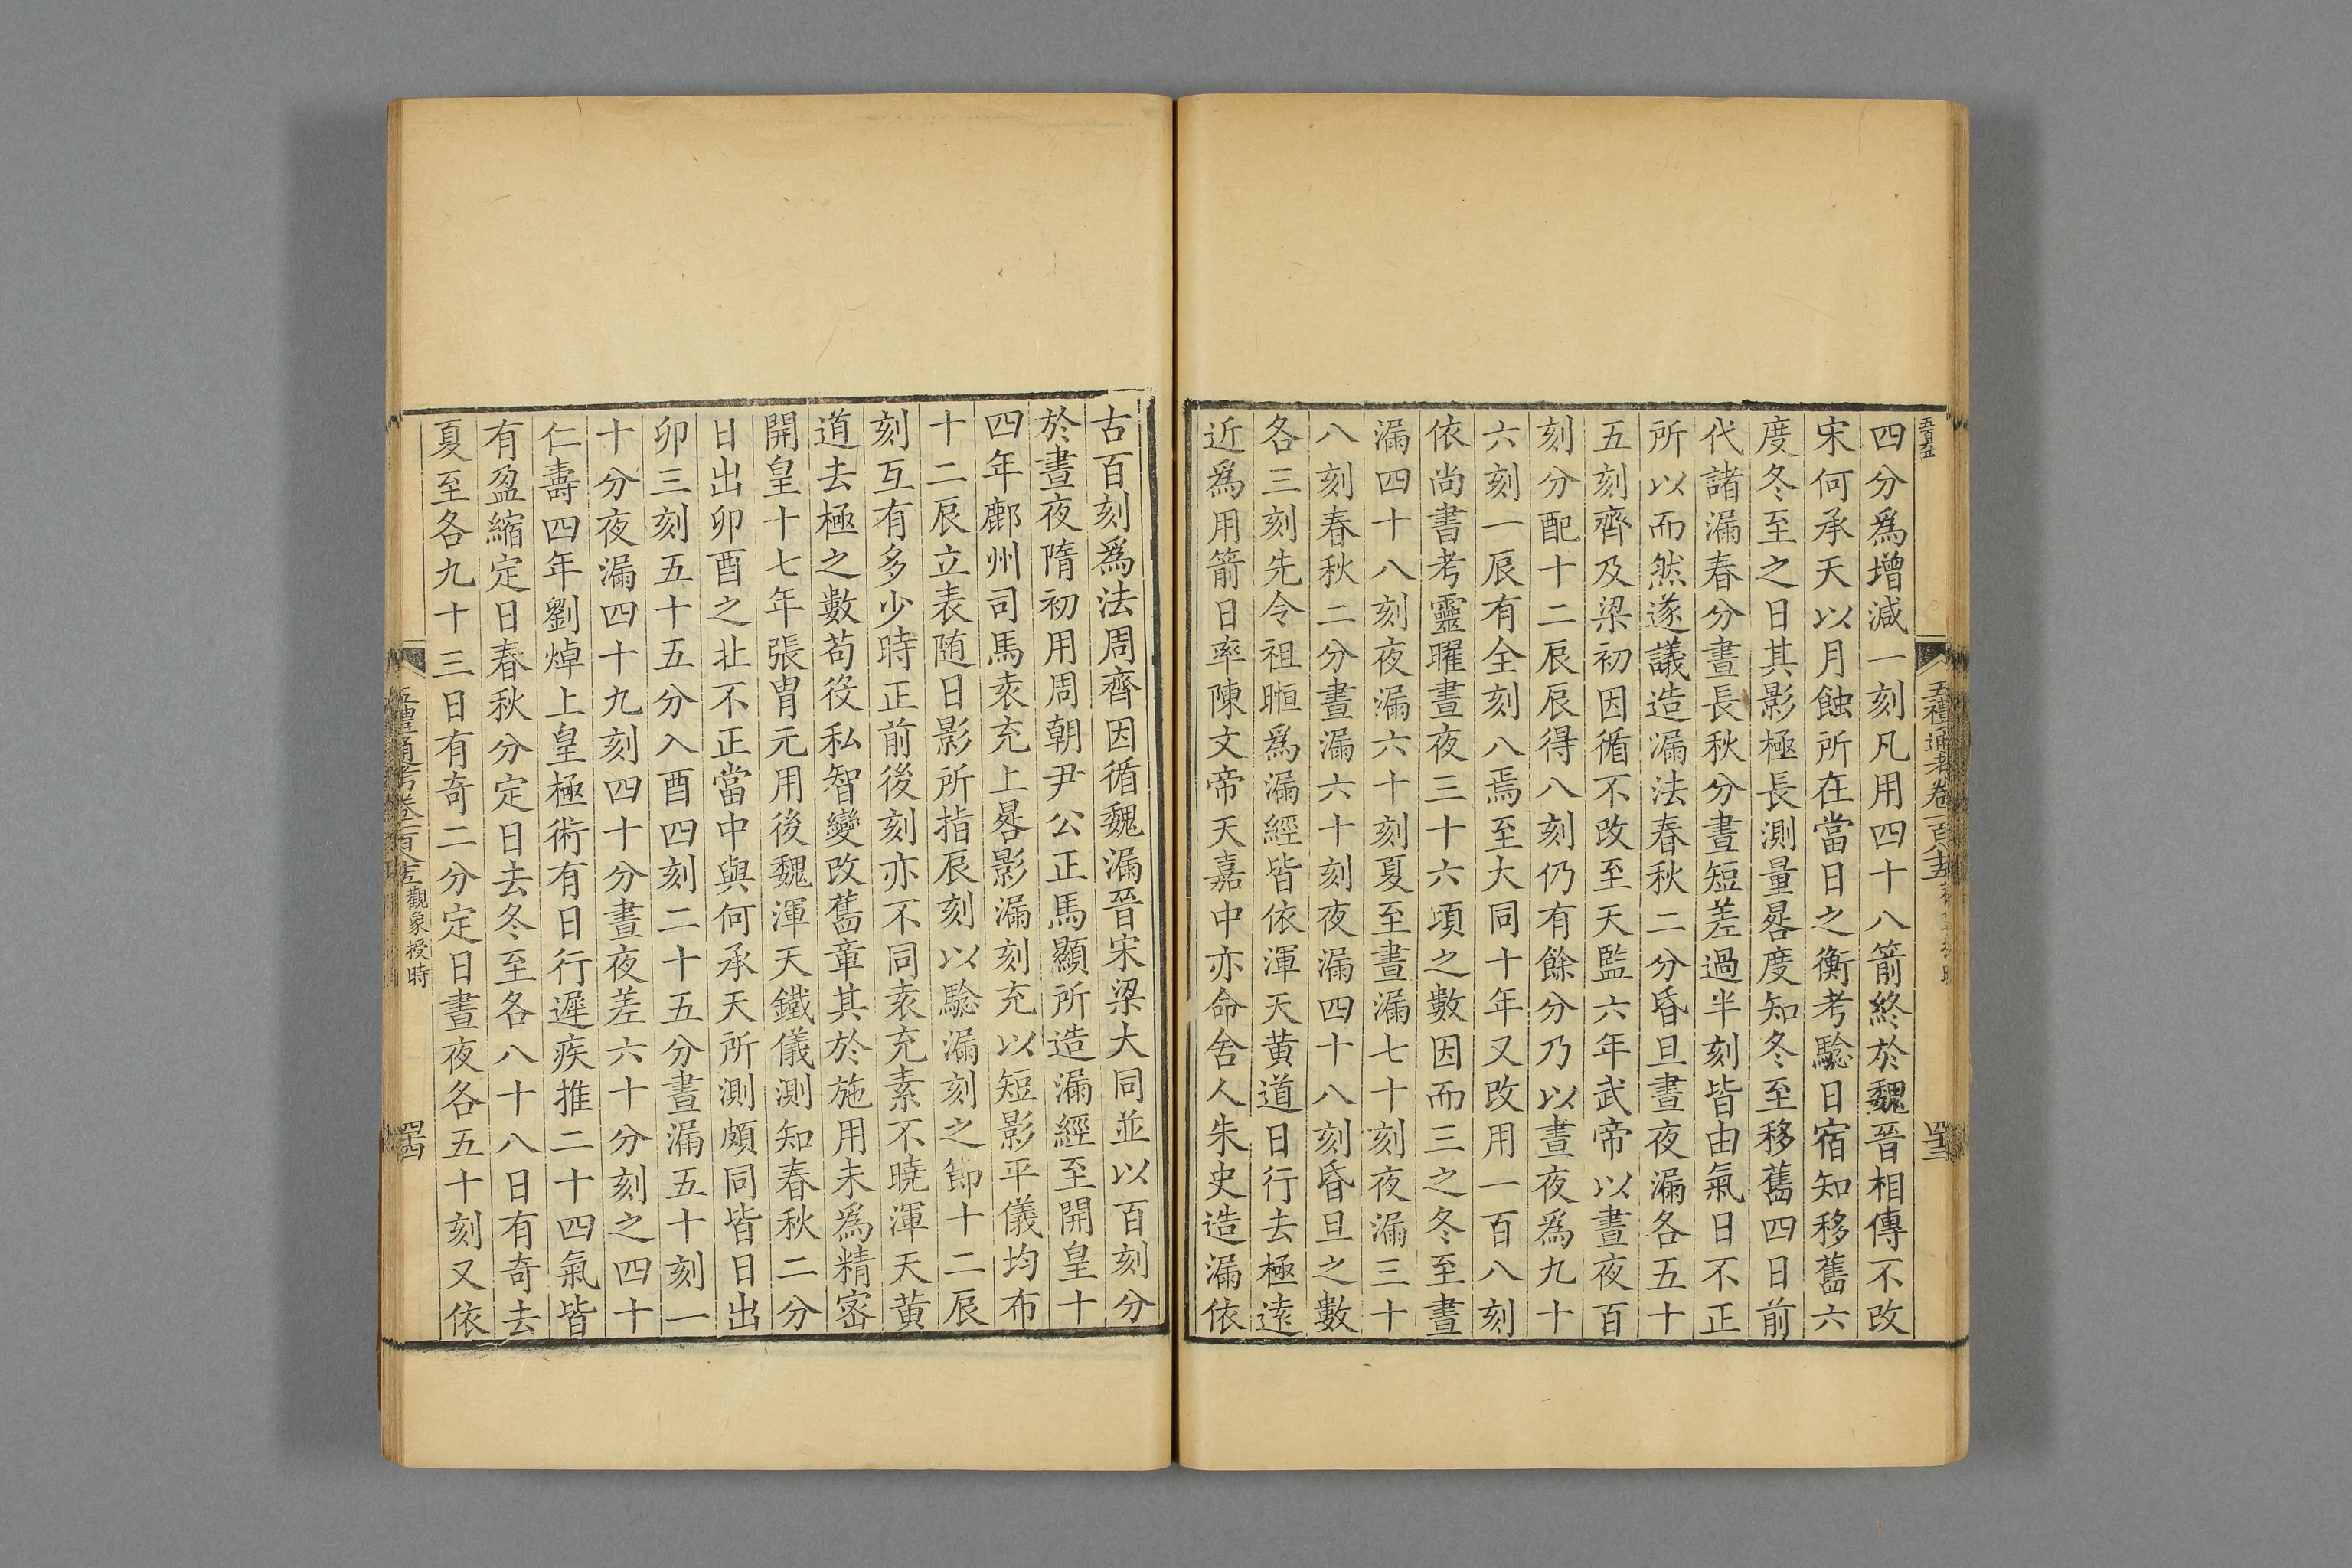 四分爲增減一刻凡用四十八箭終於魏晉相傳不改
宋何承天以月蝕所在當日之衡考驗日宿知移舊六
度冬至之日其影極長測量晷度知冬至移舊四日前
代諸漏春分晝長秋分晝短差過半刻皆由氣日不正
所以而然遂議造漏法春秋二分昏旦晝夜漏各五十
五刻齊及梁初因循不改至天監六年武帝以晝夜百
刻分配十二辰辰得八刻仍有餘分乃以晝夜爲九十
六刻一辰有全刻八焉至大同十年又改用一百八刻
依尚書考靈曜晝夜三十六頃之數因而三之冬至晝
漏四十八刻夜漏六十刻夏至晝漏七十刻夜漏三十
八刻春秋二分晝漏六十刻夜漏四十八刻昏旦之數
各三刻先令祖暅爲漏經皆依渾天黃道日行去極遠
近爲用箭日率陳文帝天嘉中亦命舍人朱史造漏依
古百刻爲法周齊因循魏漏晉宋梁大同並以百刻分
於晝夜隋初用周朝尹公正馬顯所造漏經至開皇十
四年鄜州司馬袁充上晷影漏刻充以短影平儀均布
十二辰立表隨日影所指辰刻以驗漏刻之節十二辰
刻互有多少時正前後刻亦不同袁充素不曉渾天黃
道去極之數苟役私智變改舊章其於施用未爲精密
開皇十七年張胄元用後魏渾天鐵儀測知春秋二分
日出卯酉之北不正當中與何承天所測頗同皆日出
卯三刻五十五分入酉四刻二十五分晝漏五十刻一
十分夜漏四十九刻四十分晝夜差六十分刻之四十
仁壽四年劉焯上皇極術有日行遲疾推二十四氣皆
有盈縮定日春秋分定日去冬至各八十八日有奇去
夏至各九十三日有奇二分定日晝夜各五十刻又依
觀象授時